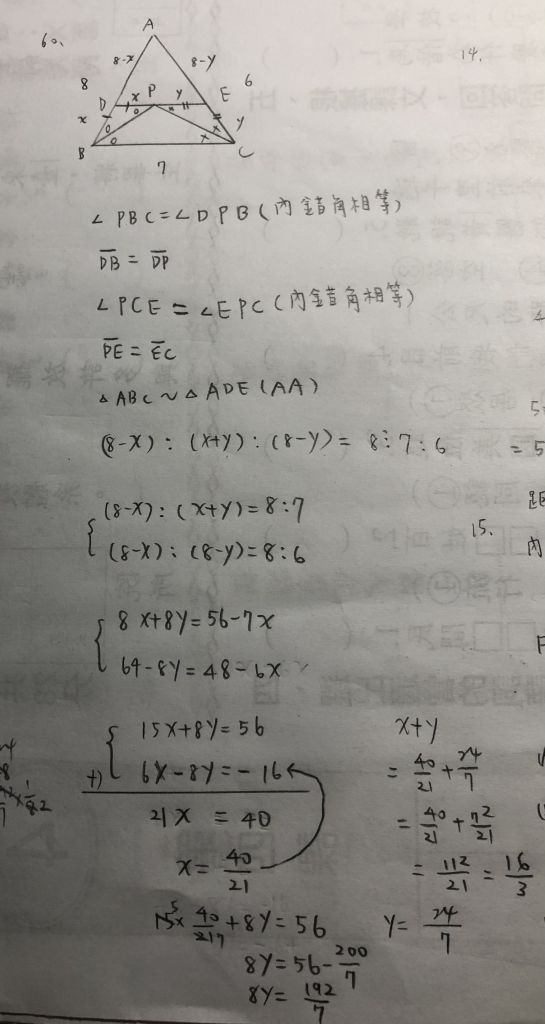 60.
14.
A
8-x
8-y
8
6
D
x
P
y
E
x
y
B
C
7
∠PBC=∠DPB(內錯角相等)
DB = DP
∠PCE = ∠EPC(內錯角相等)
PE = EC
△ABC ~ △ADE(AA)
(8-x):(x+y):(8-y)= 8:7:6
= 5
(8-x):(x+y)=8:7
(8-x):(8-y)=8:6
15.
8x+8y=56-7x
64-8y=48-6x
15x+8y=56
+) 6x-8y=-16
21x = 40
x= 40/21
15x 40/21 +8y=56
8y=56-200/7
8y= 192/7
x+y
= 40/21 + 24/7
= 40/21 + 72/21
= 112/21 = 16/3
y= 24/7